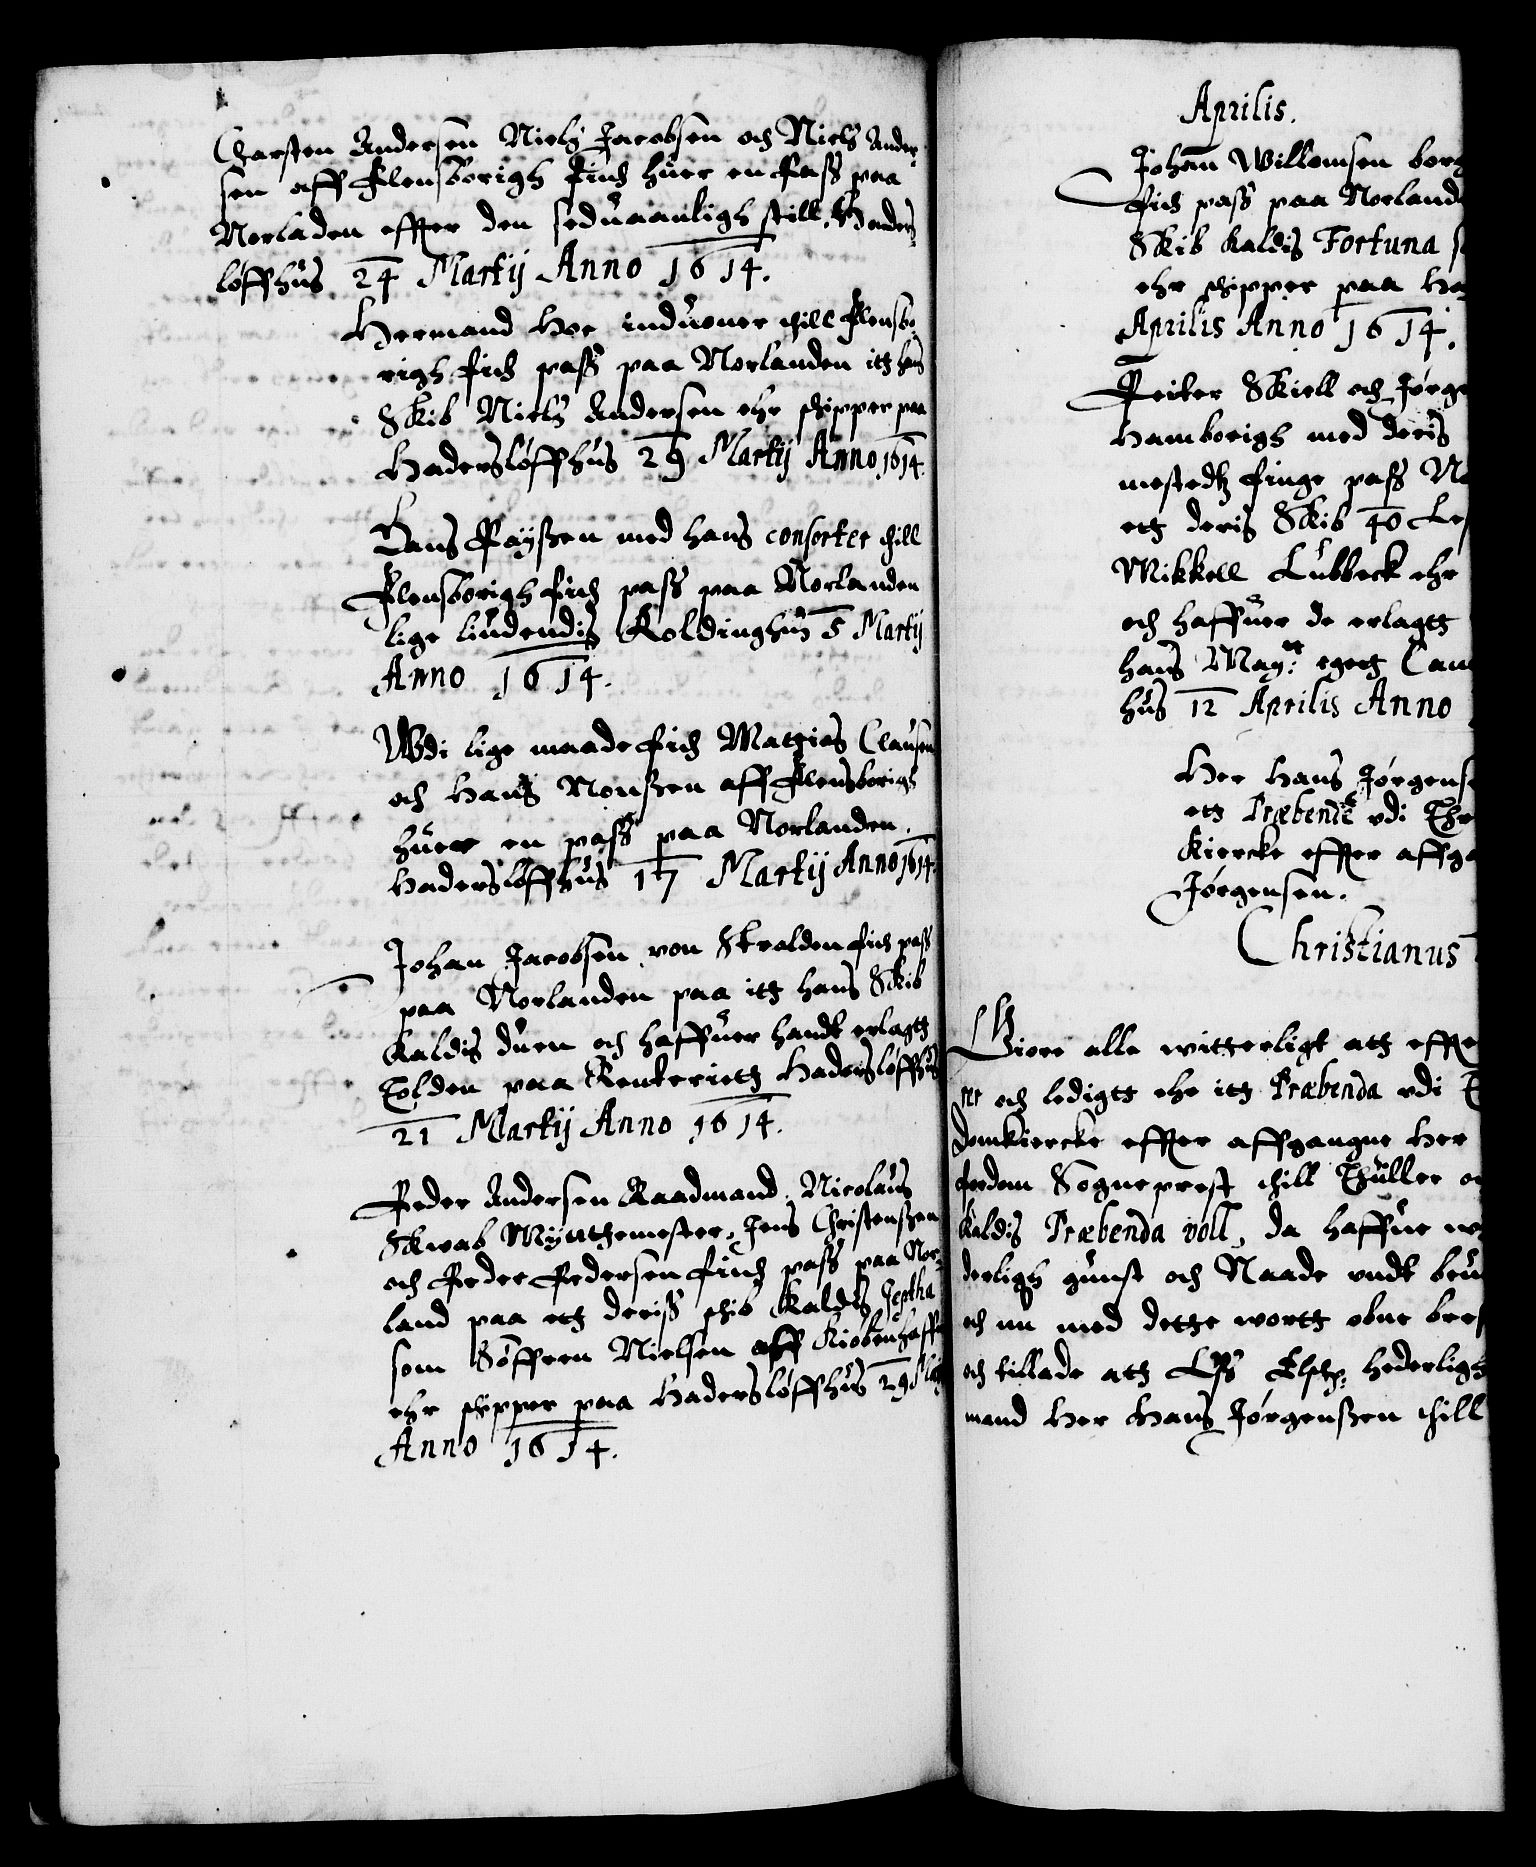 Charsten Andersen Niels Jacobsen och Niels Ander-
sen aff Flensborigh fich huer en Pass paa
Norladen effter den seduaanligh still. Haders-
löffhus 24 Martij Anno 1614.
Hermand Hoe induoner thill Flensbo-
righ fich pass paa Norlanden itt hans
Skib Niels Andersen ehr schipper paa
Hadersløffhus 29 Martij Anno 1614.
Hans Payssen med hans consorter thill
Flensborigh fich pass paa Norlanden
lige liudendis Koldinghus 5 Martij
Anno 1614.
Wdi lige maade fich Mattias Clausen
och Hans Nonssen aff Flensborigh
huer en pass paa Norlanden.
Hadersløffhus 17 Martij Anno 1614.
Johan Jacobsen von Stralden fich pass
paa Norlanden paa itt hans Skib
kaldis duen och haffuer handt erlagtt
Tolden paa Renteriett Hadersløffhus
21 Martij Anno 1614.
Peder Andersen Raadmand. Nicolaus
Skwab Mynttemester, Jens Christenssen
och Peder Pedersen fich pass paa Nor-
land paa ett deriss schib kaldis Jeptha
som Söffren Nielsen aff Kiöbenhaffn
ehr schipper paa Hadersløffhus 29 Martij
Anno 1614.
Aprilis.
Johan Willomsen borg
fich pass paa Norland
Skib kaldis Fortuna s
ehr schipper paa Ha
Aprilis Anno 1614.
Peiter Skiell och Jørge
Hamborigh med deris
mestedtz finge pass No
ett deris Skib 40 Les
Mikkell Lubbeck ehr
och haffuer de erlagtt
hans May:tt egett Cam
hus 12 Aprilis Anno
Her Hans Jørgens
ett Præbende vdi
Kiercke effter affga
Jørgensen.
Christianus
Giøre alle witterligt att effte
rer och ledigtt ehr itt Præbenda vdi
domkiercke effter affgangne Her
fordom Sogneprest thill Thuller o
kaldis Præbenda voll, da haffue w
derligh gunst och Naade vndt beu
och nu med dette wortt obne bref
och tillade att Oss Elsk: hederligh
mand Her Hans Jørgenssen thill